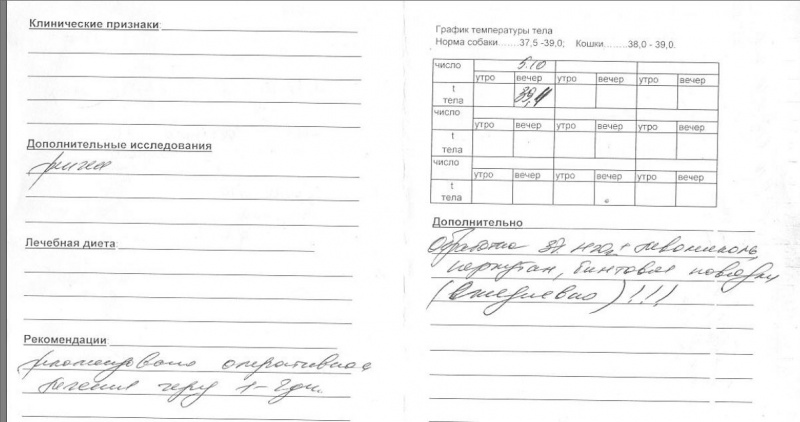 Клинические признаки
Дополнительные исследования
Лечебная диета
Рекомендации
рекомендовано оперативное
лечение через 1-2 дн.
График температуры тела
Норма собаки.......37,5 -39,0; Кошки.........38,0 - 39,0.
число 5.10
утро вечер утро вечер утро вечер
t
тела
число
утро вечер утро вечер утро вечер
t
тела
число
утро вечер утро вечер утро вечер
t
тела
Дополнительно
Обработка + левомеколь,
бинтовая повязка
(Ежедневно)!!!